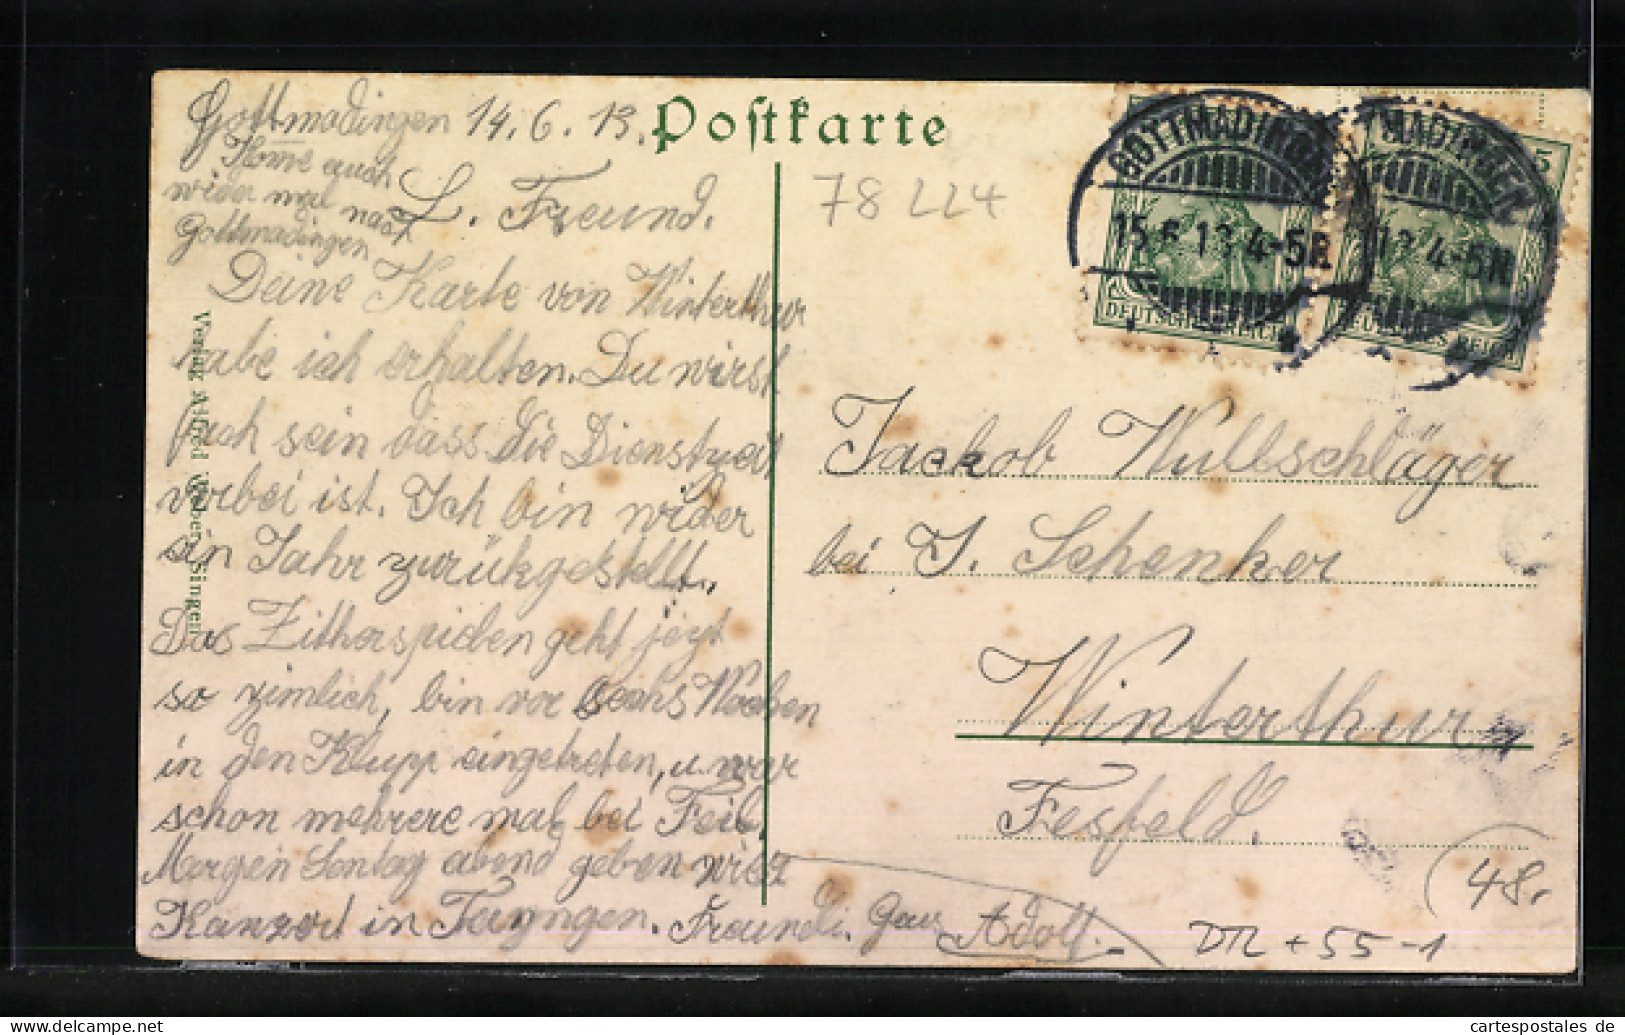 Gottmadingen 14.6.13.
Postkarte
Kome auch
wider mal nach
Gottmadingen
L. Freund.
Deine Karte von Winterthur
habe ich erhalten. Du wirst
froh sein dass die Dienstzeit
vorbei ist. Ich bin wider
ein Jahr zurükgestellt.
Das Zitherspielen geht jezt
so zimlich, bin vor sechs Wochen
in den Klupp eingetreten, u. war
schon mehrere mal bei
Morgen Sontag abend geben wir
in Tayngen. Freundl. Adolf.
Verlag Alfred Weber, Singen
78 224
GOTTMADINGEN
15.6.13.4-5N
DEUTSCHES REICH
GOTTMADINGEN
13.4-5N
5
DEUTSCHES REICH
Jackob Wullschläger
bei J. Schenker
Winterthur
Fesfeld.
48.
DR +55-1
cartespostales de
www.cartespostales.de